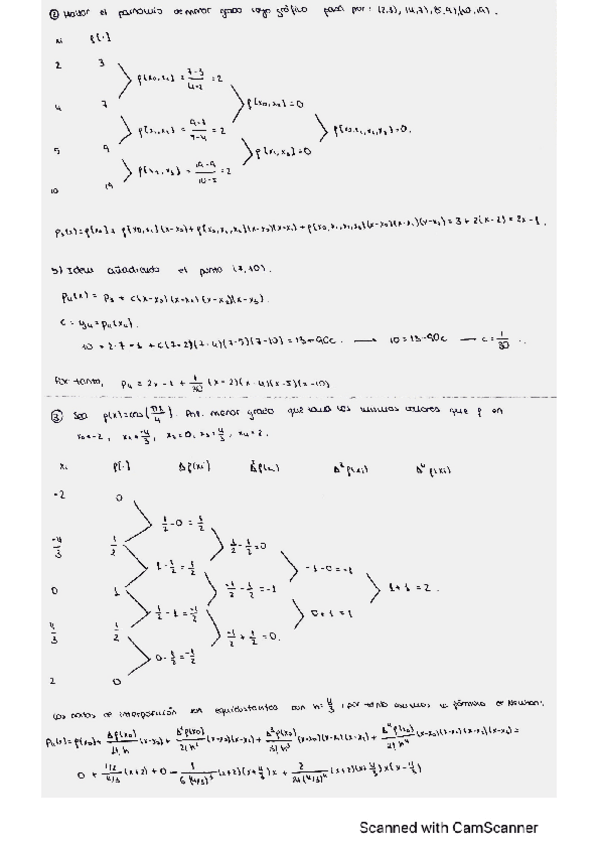 ② Hallar el polinomio de menor grado cuya gráfica pasa por: (2,3), (4,7), (5,9), (10,19).
xi f[·]
2 3
f[x0,x1] = 7-3/4-2 = 2
4 7 f[x0,x2]=0
f[x1,x2] = 9-7/5-4 = 2 f[x0,x1,x2,x3]=0.
5 9 f[x1,x3]=0
f[x2,x3] = 19-9/10-5 = 2
10 19
P3(x)=f[x0]+ f[x0,x1](x-x0)+f[x0,x1,x2](x-x0)(x-x1)+f[x0,x1,x2,x3](x-x0)(x-x1)(x-x2)=3+2(x-2)=2x-1.
b) Idem añadiendo el punto (7,10).
P4(x) = P3 + c(x-x0)(x-x1)(x-x2)(x-x3).
c = y4=P4(x4).
10 = 2·7-1 + c(7-2)(7-4)(7-5)(7-10)=13-90c. → 10=13-90c → c=1/30.
Por tanto, P4 = 2x-1 + 1/30 (x-2)(x-4)(x-5)(x-10)
③ Sea f(x)=cos(πx/4). Pol. menor grado que tenga los mismos valores que f en
x0=-2, x1=-4/3, x2=0, x3=4/3, x4=2.
xi f[·] Δf(xi) Δ²f(xi) Δ³f(xi) Δ⁴f(xi)
-2 0
1/2-0=1/2
-4/3 1/2 1/2-1/2=0
1-1/2=1/2 -1-0=-1
0 1 -1/2-1/2=-1 1+1=2.
1/2-1=-1/2 0+1=1
4/3 1/2 -1/2+1/2=0.
0-1/2=-1/2
2 0
Los nodos de interpolación son equidistantes con h=4/3, por tanto usamos la fórmula de Newton:
P4(x)=f(x0)+ Δf(x0)/1!h (x-x0)+ Δ²f(x0)/2!h² (x-x0)(x-x1)+ Δ³f(x0)/3!h³ (x-x0)(x-x1)(x-x2)+ Δ⁴f(x0)/2!h⁴ (x-x0)(x-x1)(x-x2)(x-x3)=
0 + 1/2/4/3 (x+2) + 0 - 1/6(4/3)³ (x+2)(x+4/3)x + 2/24(4/3)⁴ (x+2)(x+4/3)x(x-4/3)
Scanned with CamScanner